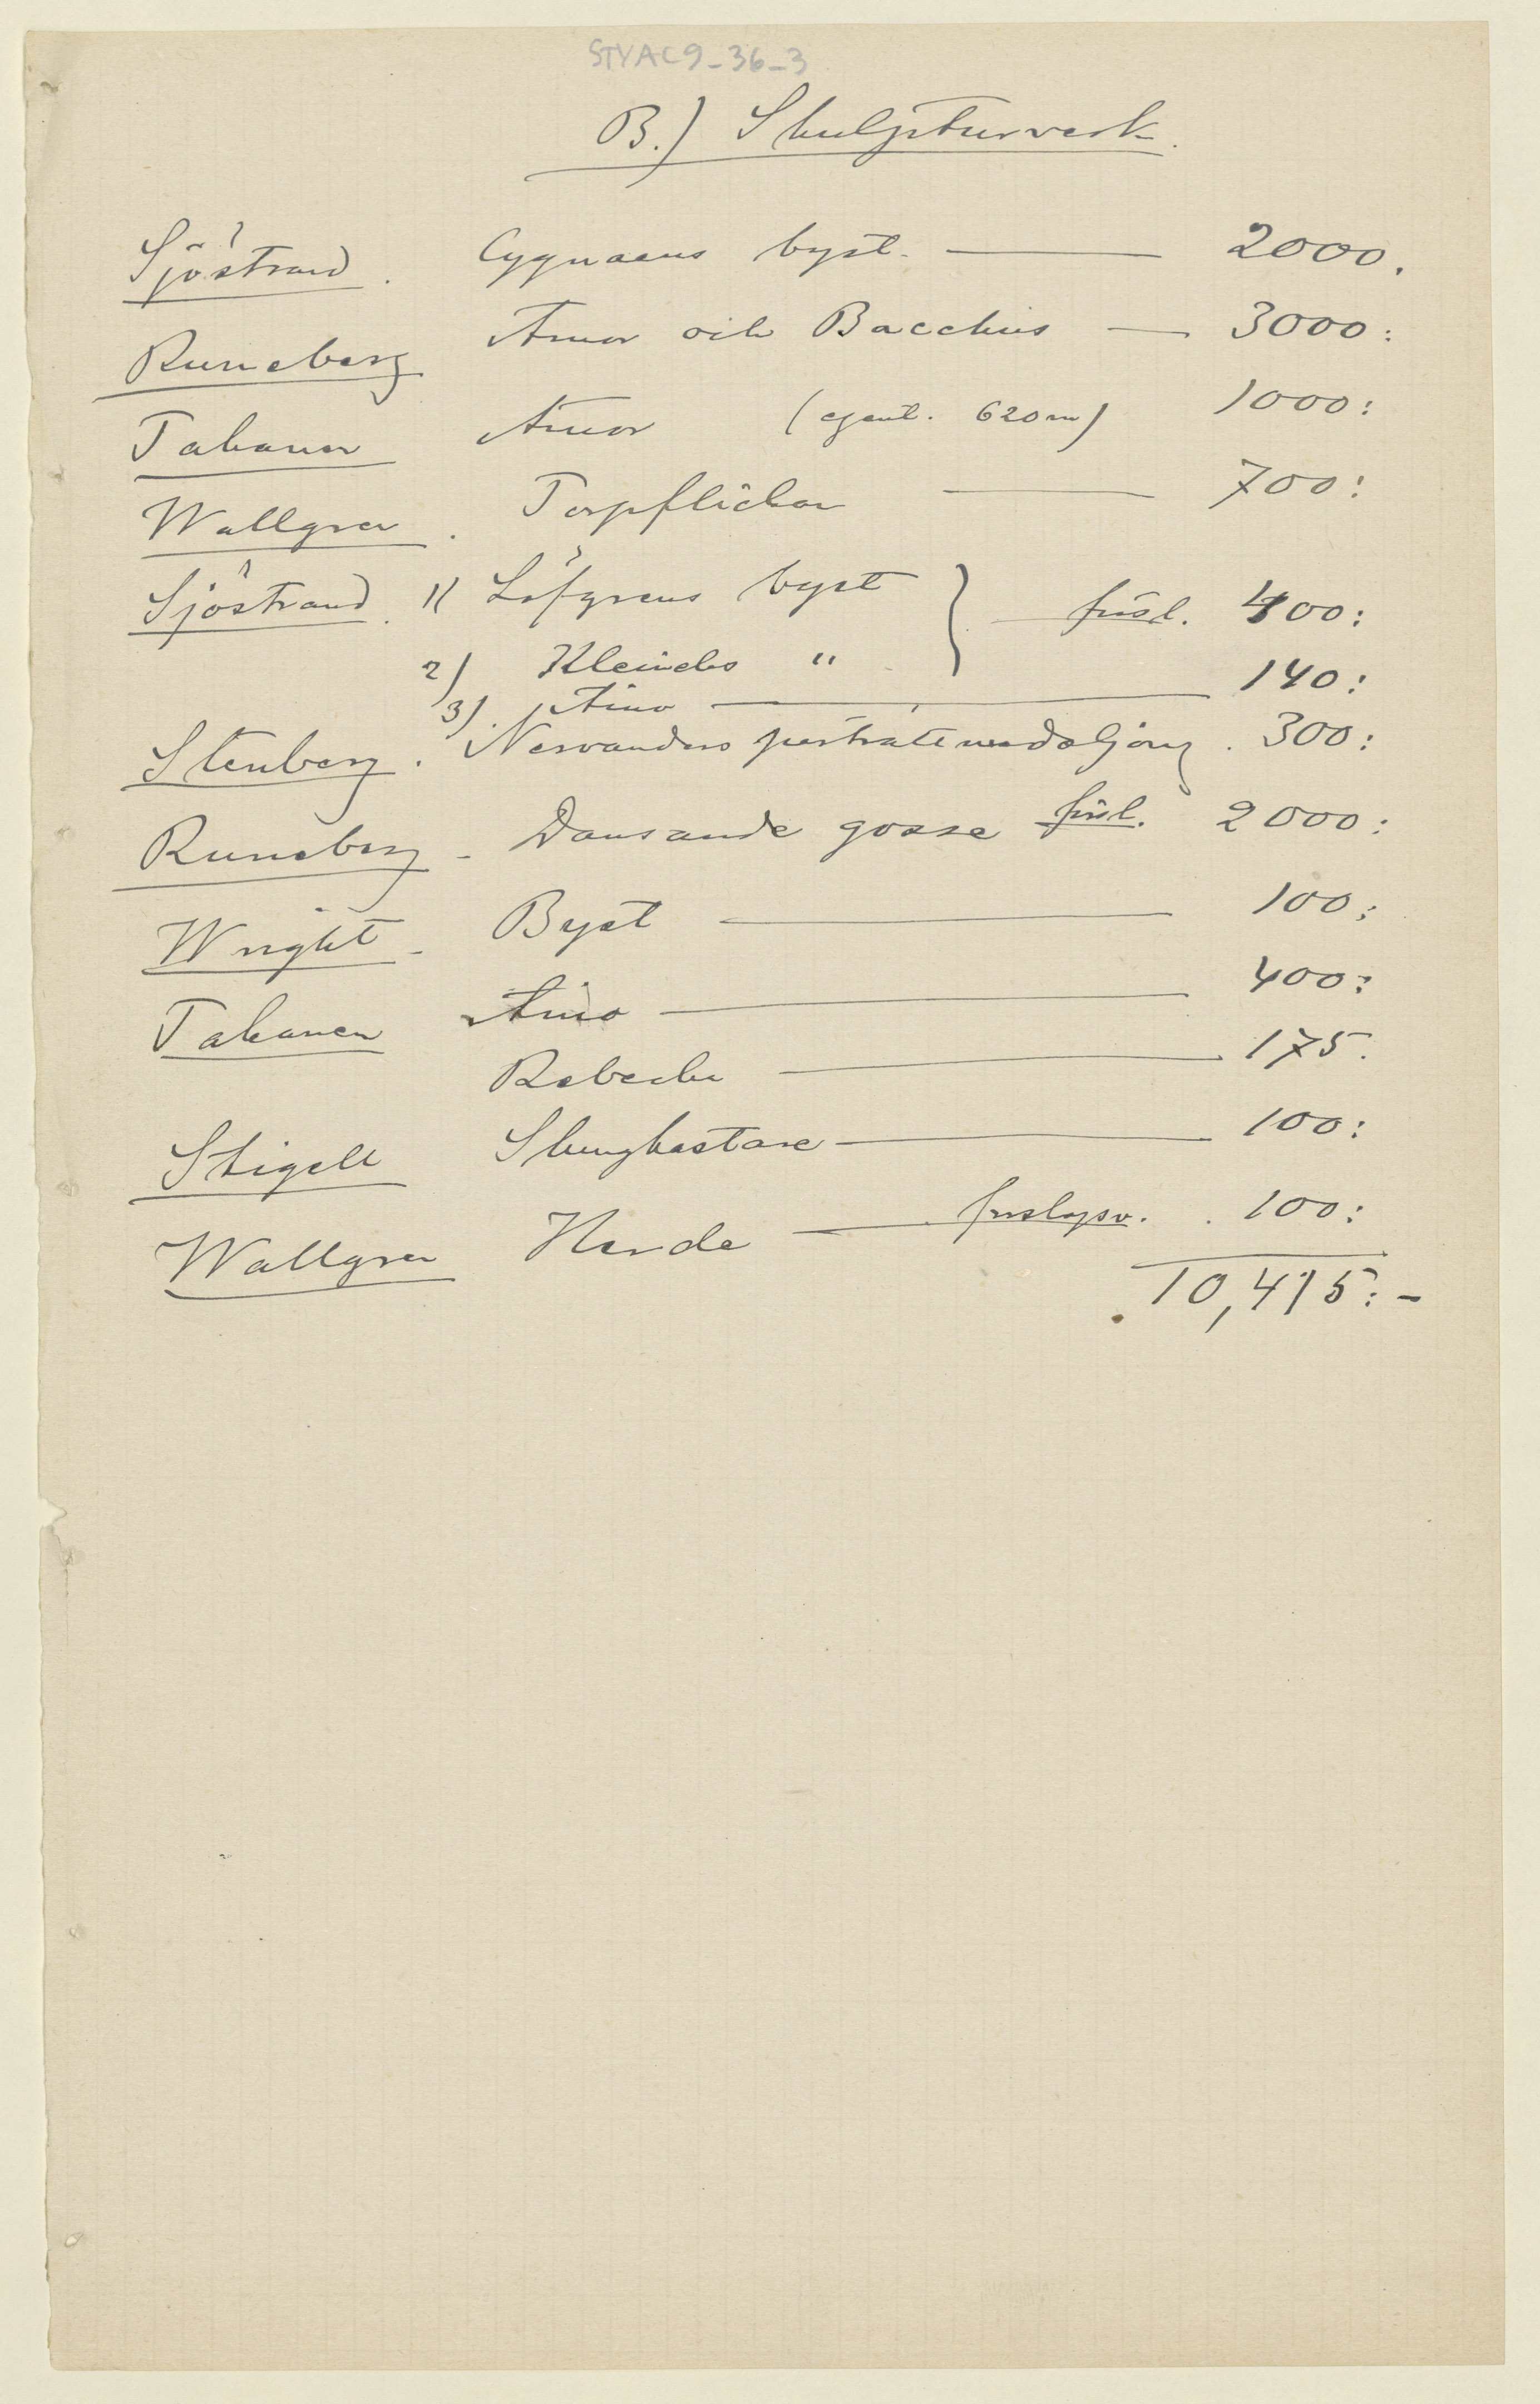 STYAC9-36-3
B.) Skulpturverk.
Sjöstrand. Cygnaeus byst. — 2000.
Runeberg Amor och Bacchus — 3000:
Takanen Amor (egentl. 620 m) 1000:
Wallgren. Torpflickan — 700:
Sjöstrand. 1) Löfgrens byst } — frisl. 400:
2) Kleinehs "
3). Aino — 140:
Stenberg. Nervanders porträttmedaljong. 300:
Runeberg - Dansande gosse frisl. 2000:
Wright - Byst — 100:
Takanen Aino — 400:
Rebecka — 175.
Stigell Slungkastare — 100:
Wallgren Herde — 100:
10,415:-